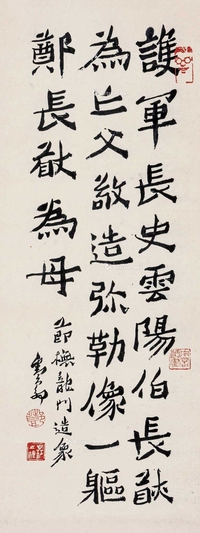 護軍長史雲陽伯長猷
為亡父敬造弥勒像一軀
鄭長猷為母
節橅龍門造象